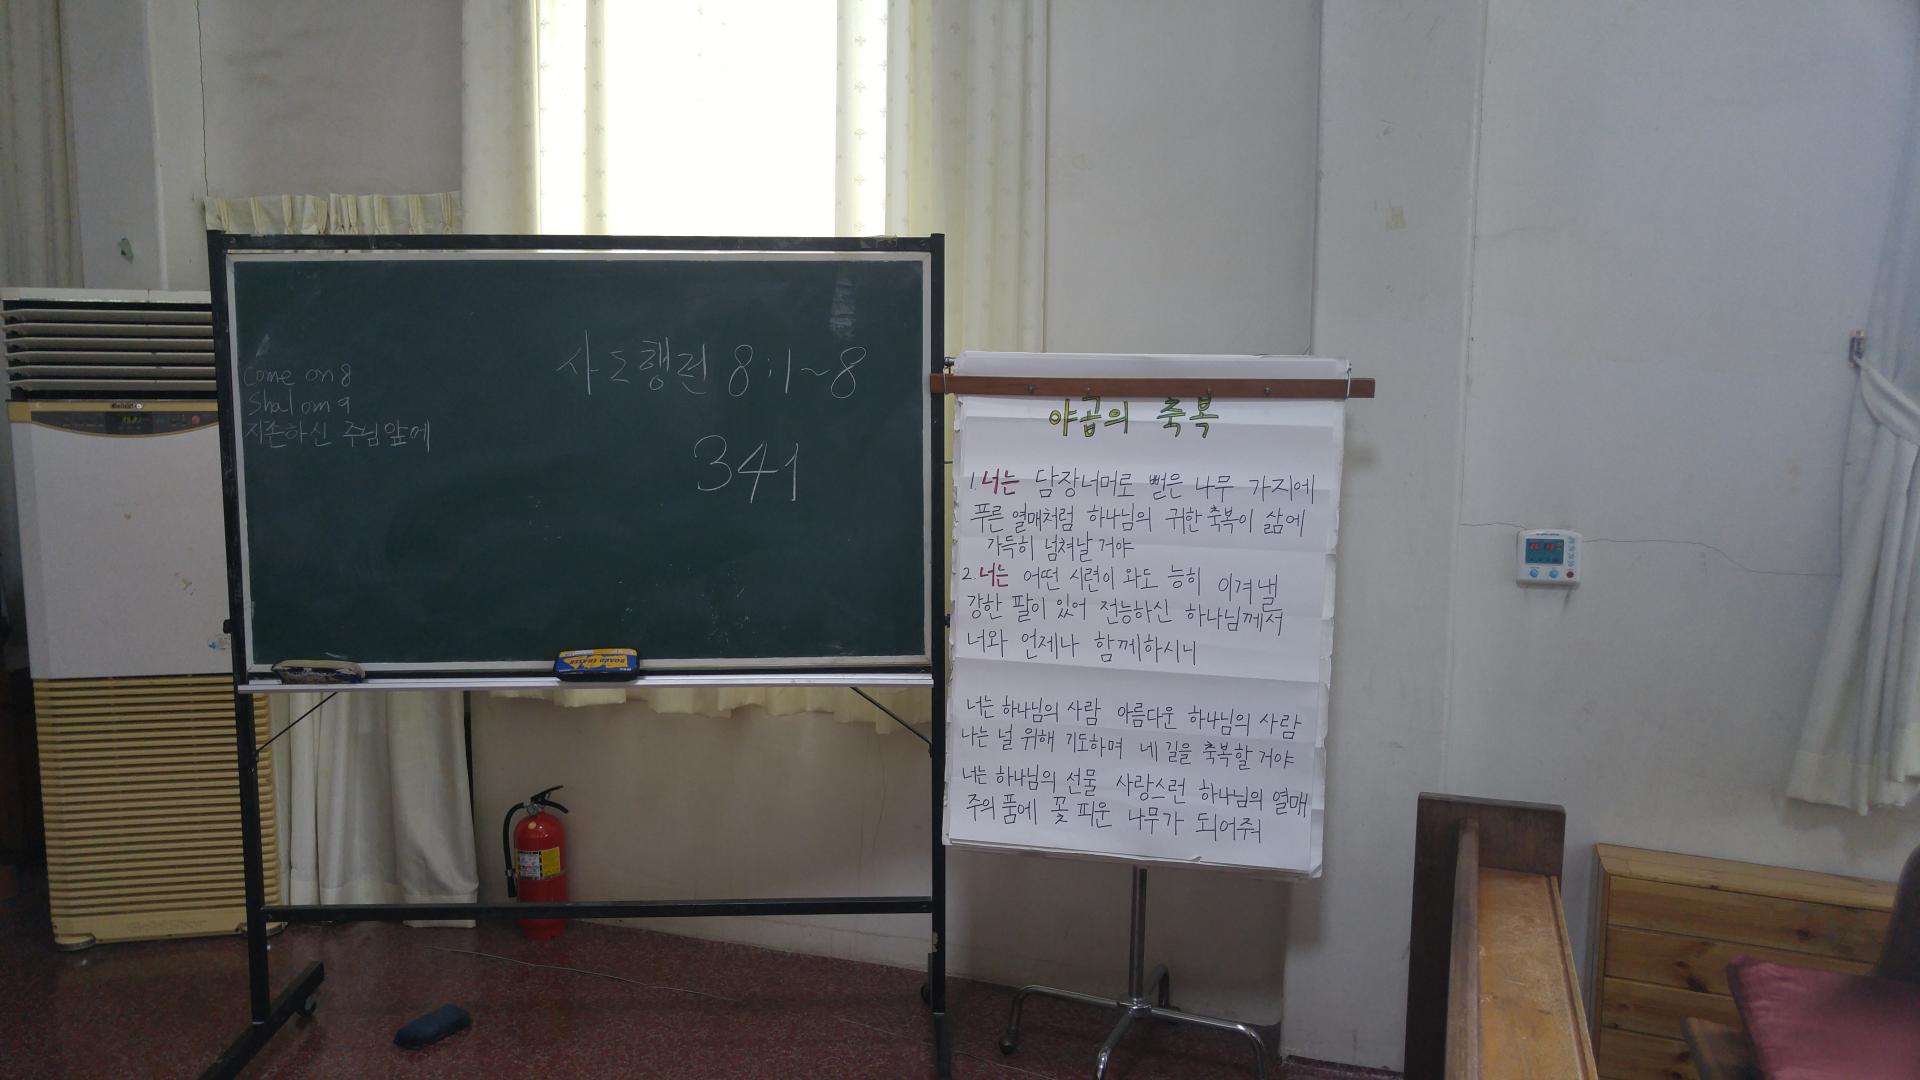 Come on 8
Shalom 9
지존하신 주님 앞에
사도행전 8:1~8
341
BOARD ERASER
야곱의 축복
1. 너는 담장너머로 뻗은 나무 가지에
푸른 열매처럼 하나님의 귀한 축복이 삶에
가득히 넘쳐날 거야
2. 너는 어떤 시련이 와도 능히 이겨낼
강한 팔이 있어 전능하신 하나님께서
너와 언제나 함께하시니
너는 하나님의 사람 아름다운 하나님의 사람
나는 널 위해 기도하며 네 길을 축복할 거야
너는 하나님의 선물 사랑스런 하나님의 열매
주의 품에 꽃 피운 나무가 되어줘